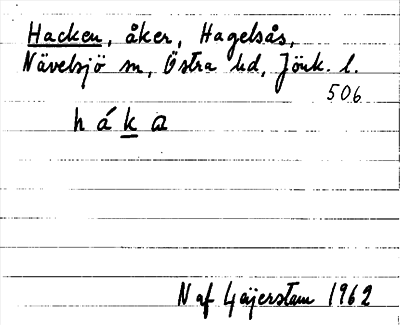 Hacken, åker, Hagelsås,
Nävelsjö sn, Östra hd, Jönk. l.
506
h á k a
N af Geijerstam 1962